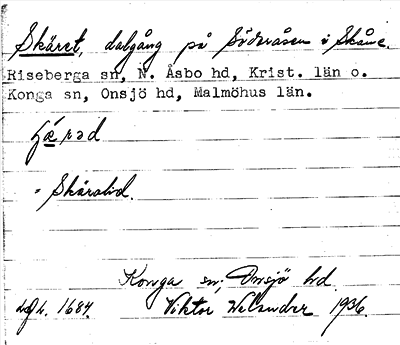 Skäret, dalgång på Söderåsen i Skåne.
Riseberga sn, N. Åsbo hd, Krist. län o.
Konga sn, Onsjö hd, Malmöhus län.
Skäralid.
Konga sn, Onsjö hd.
1684. Viktor Welander 1936.